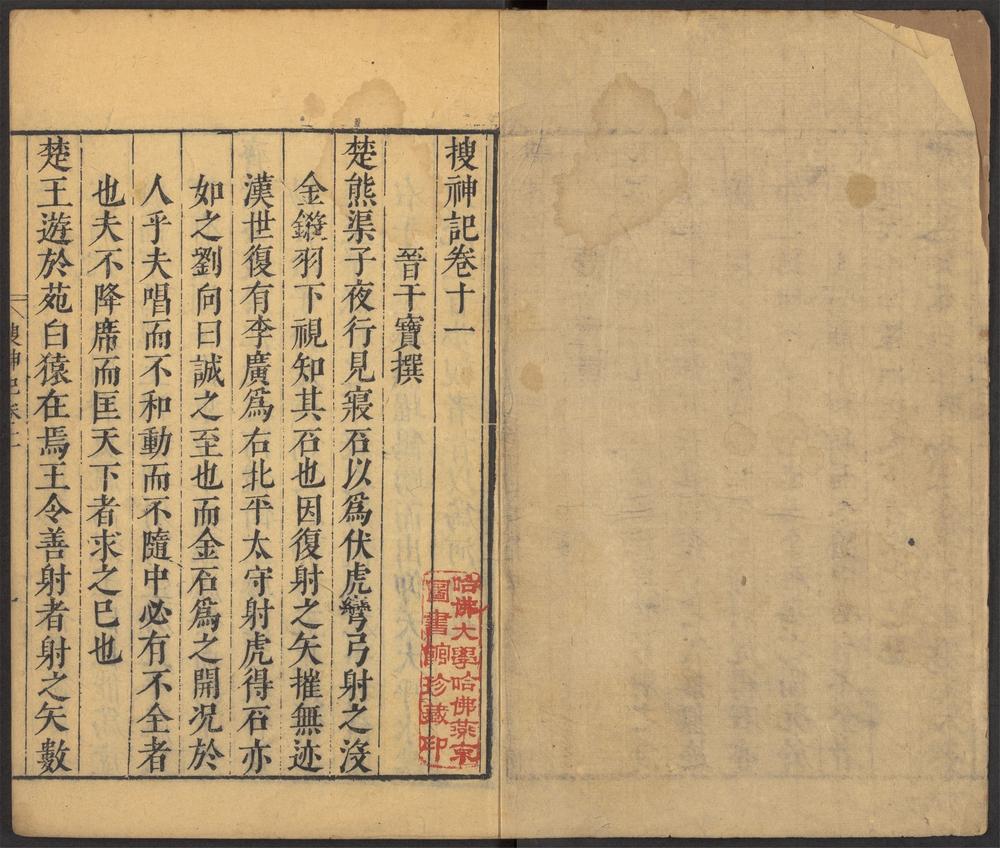 搜神記卷十一
晉干寶撰
楚熊渠子夜行見寢石以爲伏虎彎弓射之沒
金鎩羽下視知其石也因復射之矢摧無迹
漢世復有李廣爲右北平太守射虎得石亦
如之劉向曰誠之至也而金石爲之開况於
人乎夫唱而不和動而不隨中必有不全者
也夫不降席而匡天下者求之已也
楚王遊於苑白猿在焉王令善射者射之矢數
哈佛大學哈佛燕京
圖書館珍藏印